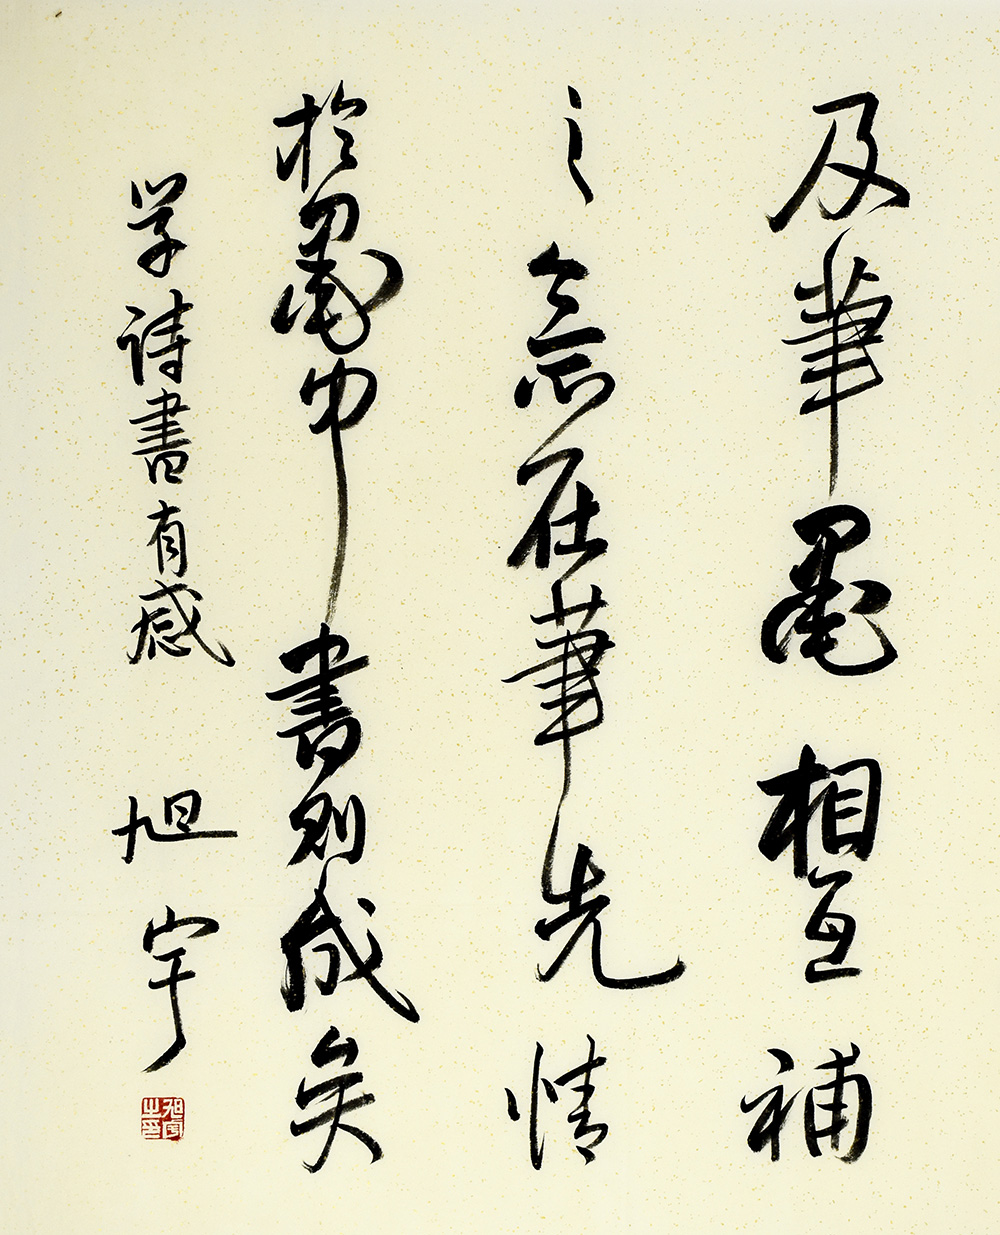 及筆墨相互補
之意在筆先情
於墨中書則成矣
学詩書有感 旭宇
旭宇之印